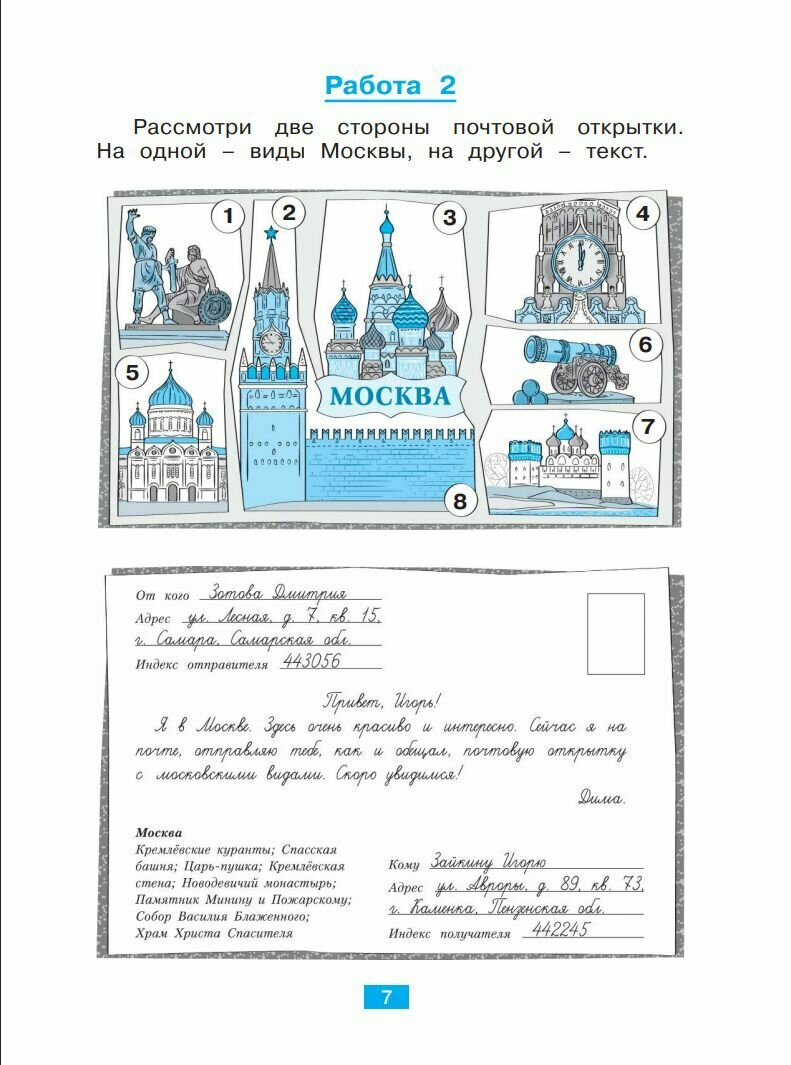 Работа 2
Рассмотри две стороны почтовой открытки.
На одной – виды Москвы, на другой – текст.
1
2
3
4
5
6
МОСКВА
7
8
От кого Зотова Дмитрия
Адрес ул. Лесная, д. 7, кв. 15,
г. Самара, Самарская обл.
Индекс отправителя 443056
Привет, Игорь!
Я в Москве. Здесь очень красиво и интересно. Сейчас я на
почте, отправляю тебе, как и обещал, почтовую открытку
с московскими видами. Скоро увидимся!
Дима.
Москва
Кремлёвские куранты; Спасская
башня; Царь-пушка; Кремлёвская
стена; Новодевичий монастырь;
Памятник Минину и Пожарскому;
Собор Василия Блаженного;
Храм Христа Спасителя
Кому Зайкину Игорю
Адрес ул. Авроры, д. 89, кв. 73,
г. Каменка, Пензенская обл.
Индекс получателя 442245
7